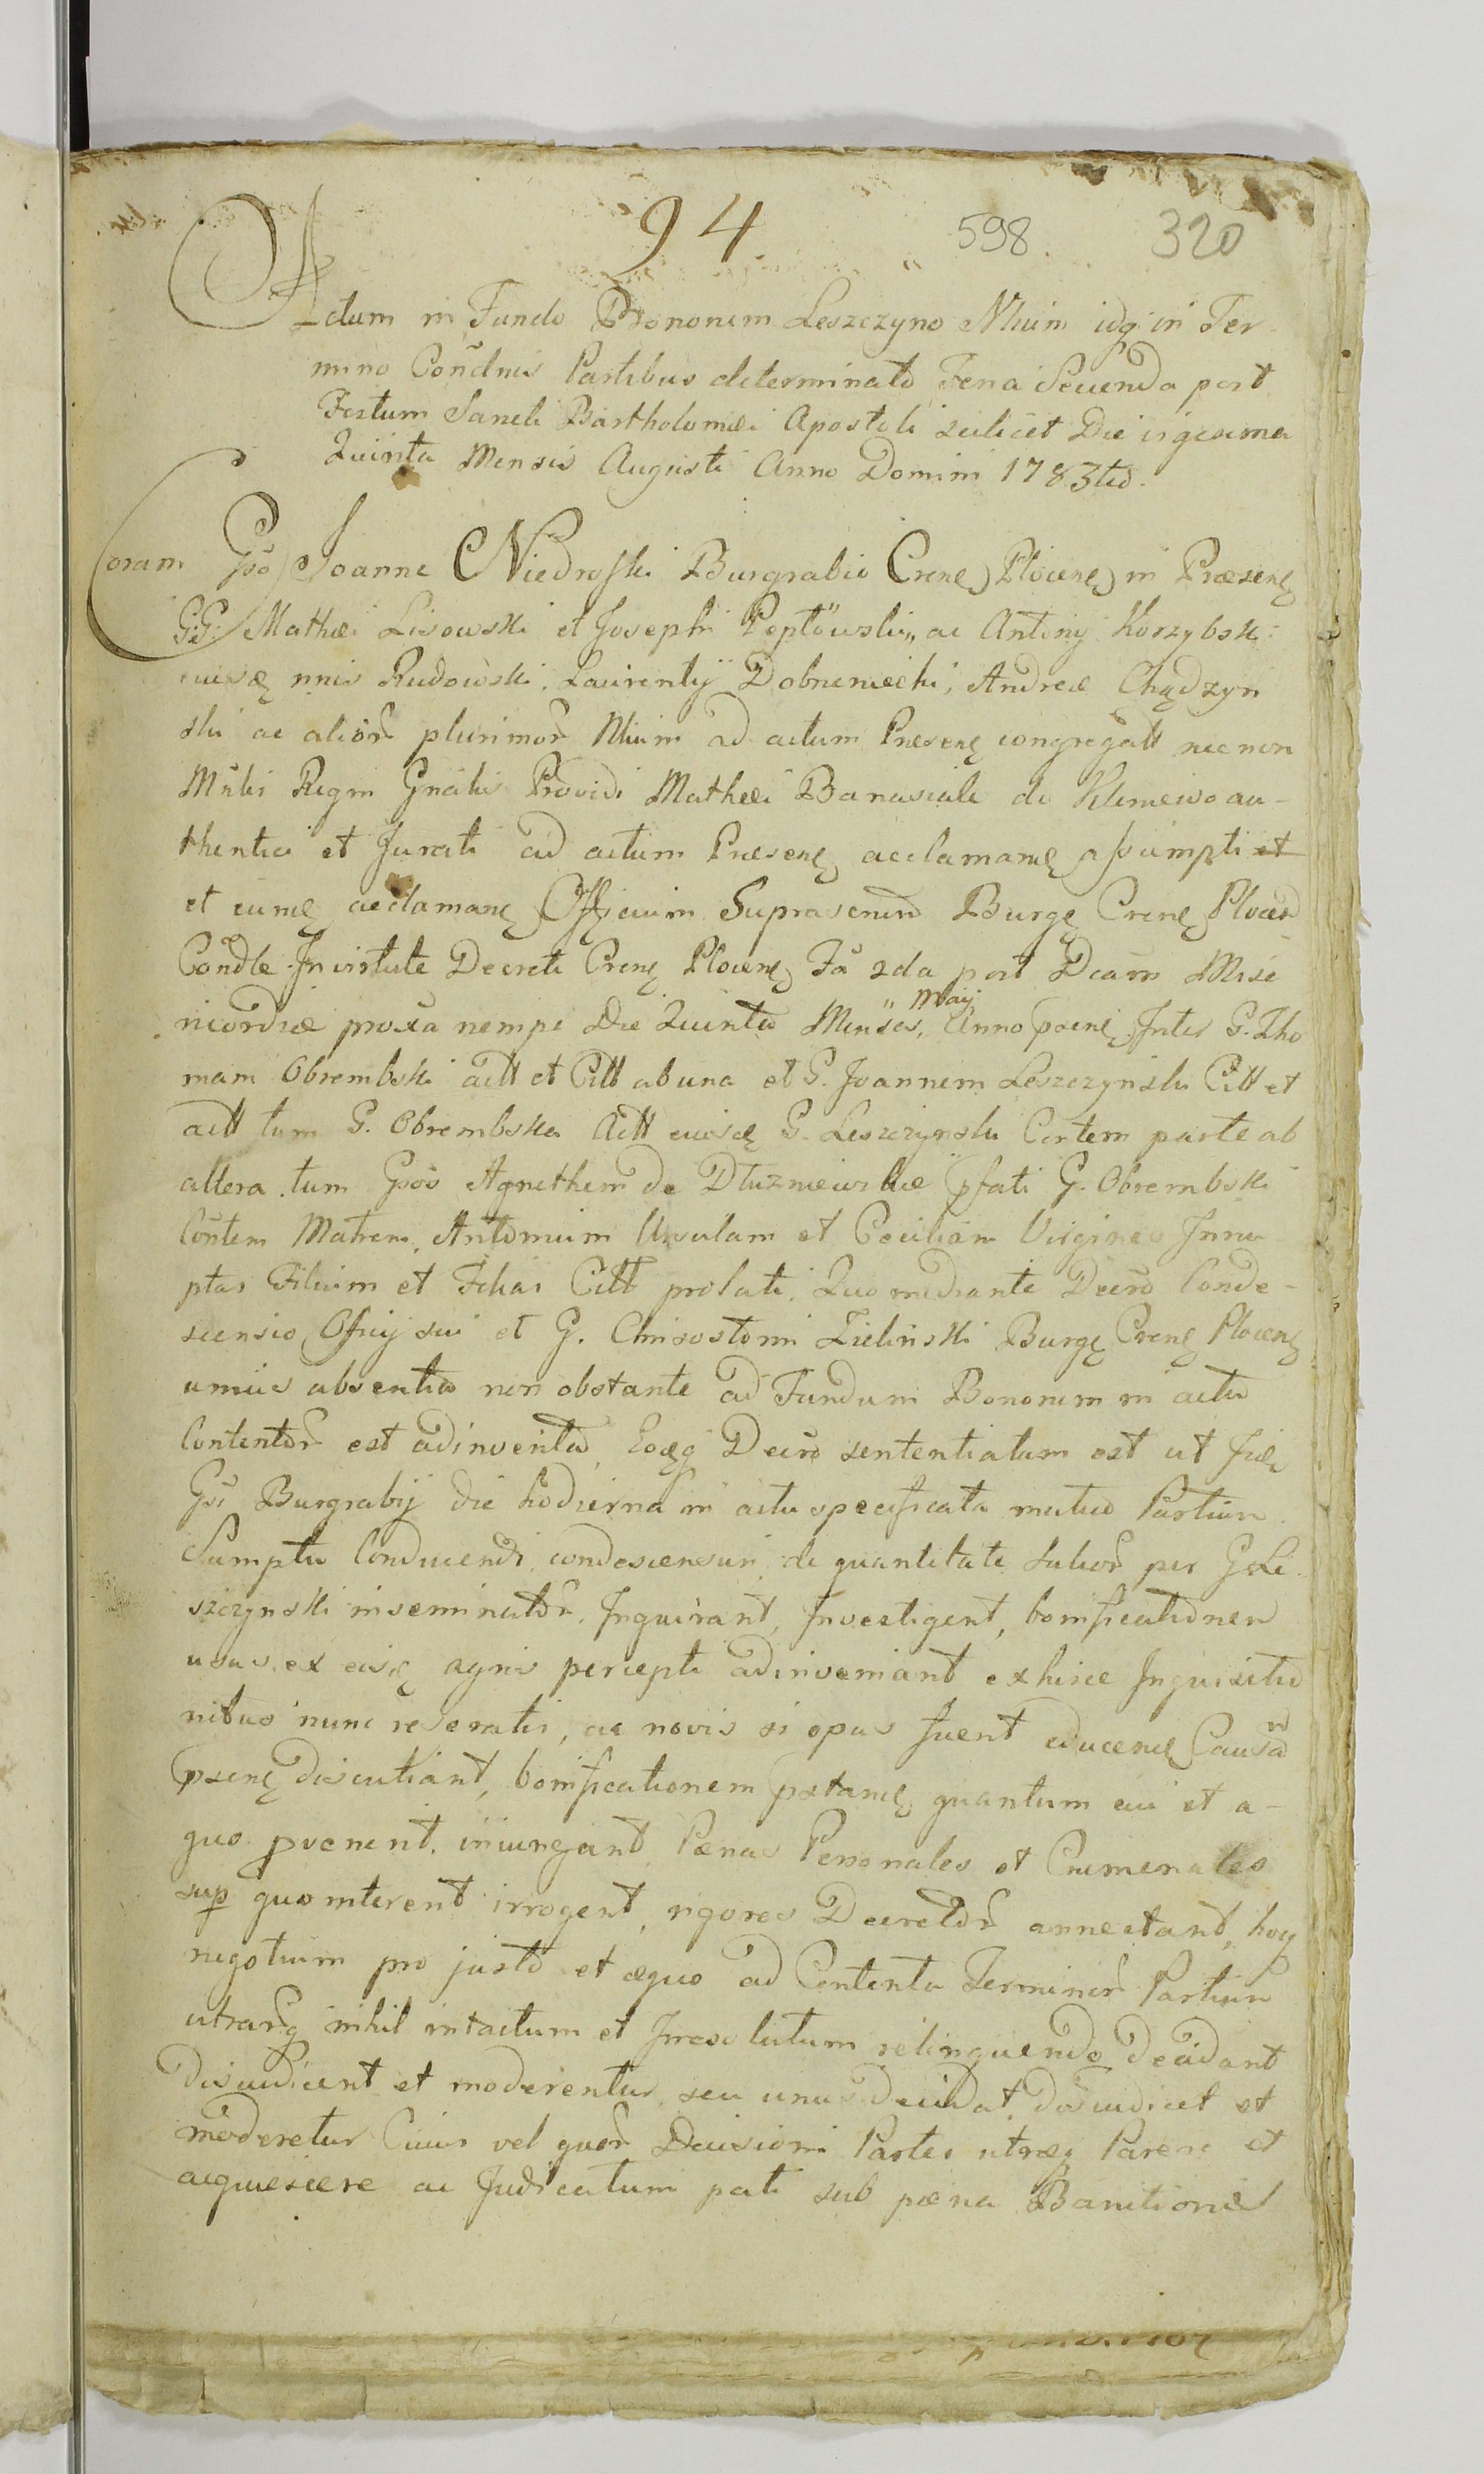 94 598. 320
Actum in Fundo Bononem Leszczyno Nhium idq in Ter-
mino Condnis Partibus determinato Feria Secunda post
Festum Sancti Bartholomæi Apostoli scilicet Die igesima
Quinta Mensis Augusti Anno Domini 1783tio.
Coram Gso Joanne Niedroski Burgrabio Crenę Plocenę in Præsenę
GG. Mathæi Lisowski et Josephi Peptowski, ac Antonij Korzybski
nnis Rudowski, Laurentij Dobrneniecki, Andreæ Chądzyn
ski ac aliorr plurimorr Nhium ad actum Præsenę congregatt nec non
Mnlis Regni Gnalis Providi Mathæi Banasiak de Kleniewo au-
thentici et Jurati ad actum Præsenę acclamanę assumpti et
et eumę acclamanę Officium Suprascrird Burgę Crenę Plocen
Condle In virtute Decreti Crenę Plocenę Fa 2da post Dcam Mise
ricordiæ proxa nempe Die Quinta Mensis, Maij Anno psenę Inter G. Tho
mam Obrembski actt et Citt ab una et G. Joannem Leszczynski Citt et
actt tum G. Obrembska Actt G. Leszczynski Contem parte ab
altera. tum Gsos Agnethem de Dłuzniewskie pfati G. Obrembski
Contem Matrem, Antonium Ursulam et Ceciliam Virgines Innu
ptas Filium et Filias Citt prolati. Quo mediante Decro Conde-
scensio Officij sui et G. Chrisostomi Zielinski Burgę Crenę Plocenę
unius absentia non obstante ad Fundum Bononem in actu
Contentorr est adinventa, Eoqq Decro sententiatum est ut
Gsi Burgrabij die hodierna in actu specificata mutuo Partium
Sumptu Conducendi condescensuri de quantitate satiorr per G Le
szczynski inseminatorr. Inquirant, Investigent, bonificationen
usus ex eisę agris percepti adinveniant ex hisce Inquisitio
nibus nunc reseratis, ac novis si opus fuerit educenę Causam
psenę discutiant, bonificationem pstanę quantum cui et a-
quo pvenerit. iniungant Pænas Personales et Criminales
sup quo interent irrogent, rigores Decretorr annectant, hocq
negotium pro justo et æquo ad Contenta Terminorr Partium
utrarq nihil intactum et Irresolutum relinquendo Decidant
Disiudicent et moderentur seu unus Decidat, Disiudicet et
moderetur Cuius vel quorr Decisioni Partes utræq Parere et
acquiescere ac Judicatum pati sub pæna Banitionis